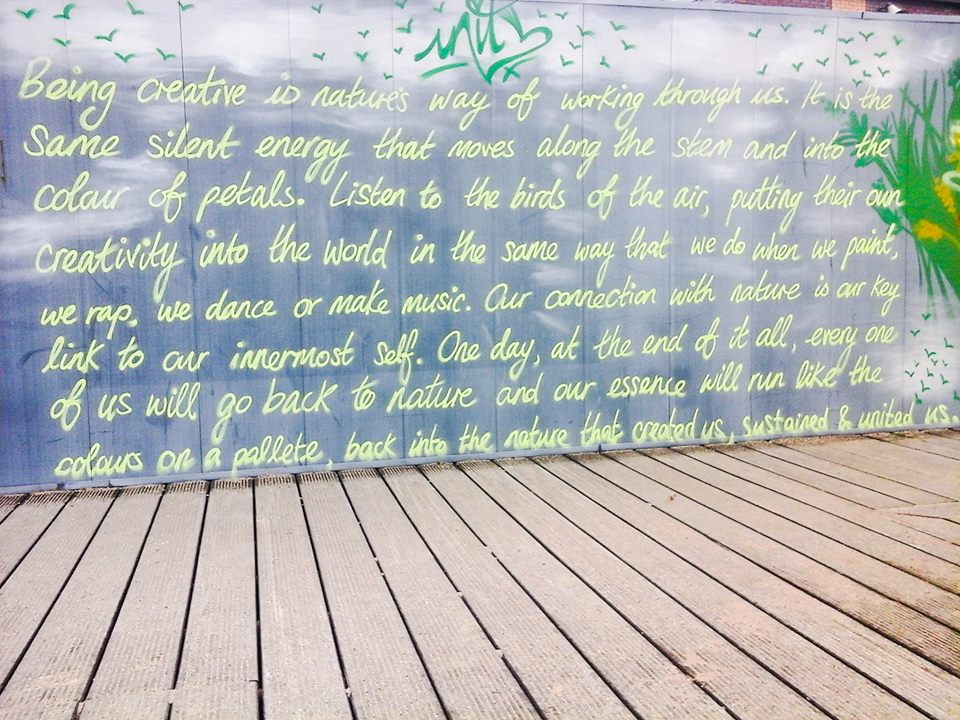 Being creative is nature's way of working through us. It is the
same silent energy that moves along the stem and into the
colour of petals. Listen to the birds of the air, putting their own
creativity into the world in the same way that we do when we paint,
we rap, we dance or make music. Our connection with nature is our key
link to our innermost self. One day, at the end of it all, every one
of us will go back to nature and our essence will run like the
colours on a pallete, back into the nature that created us, sustained & united us.